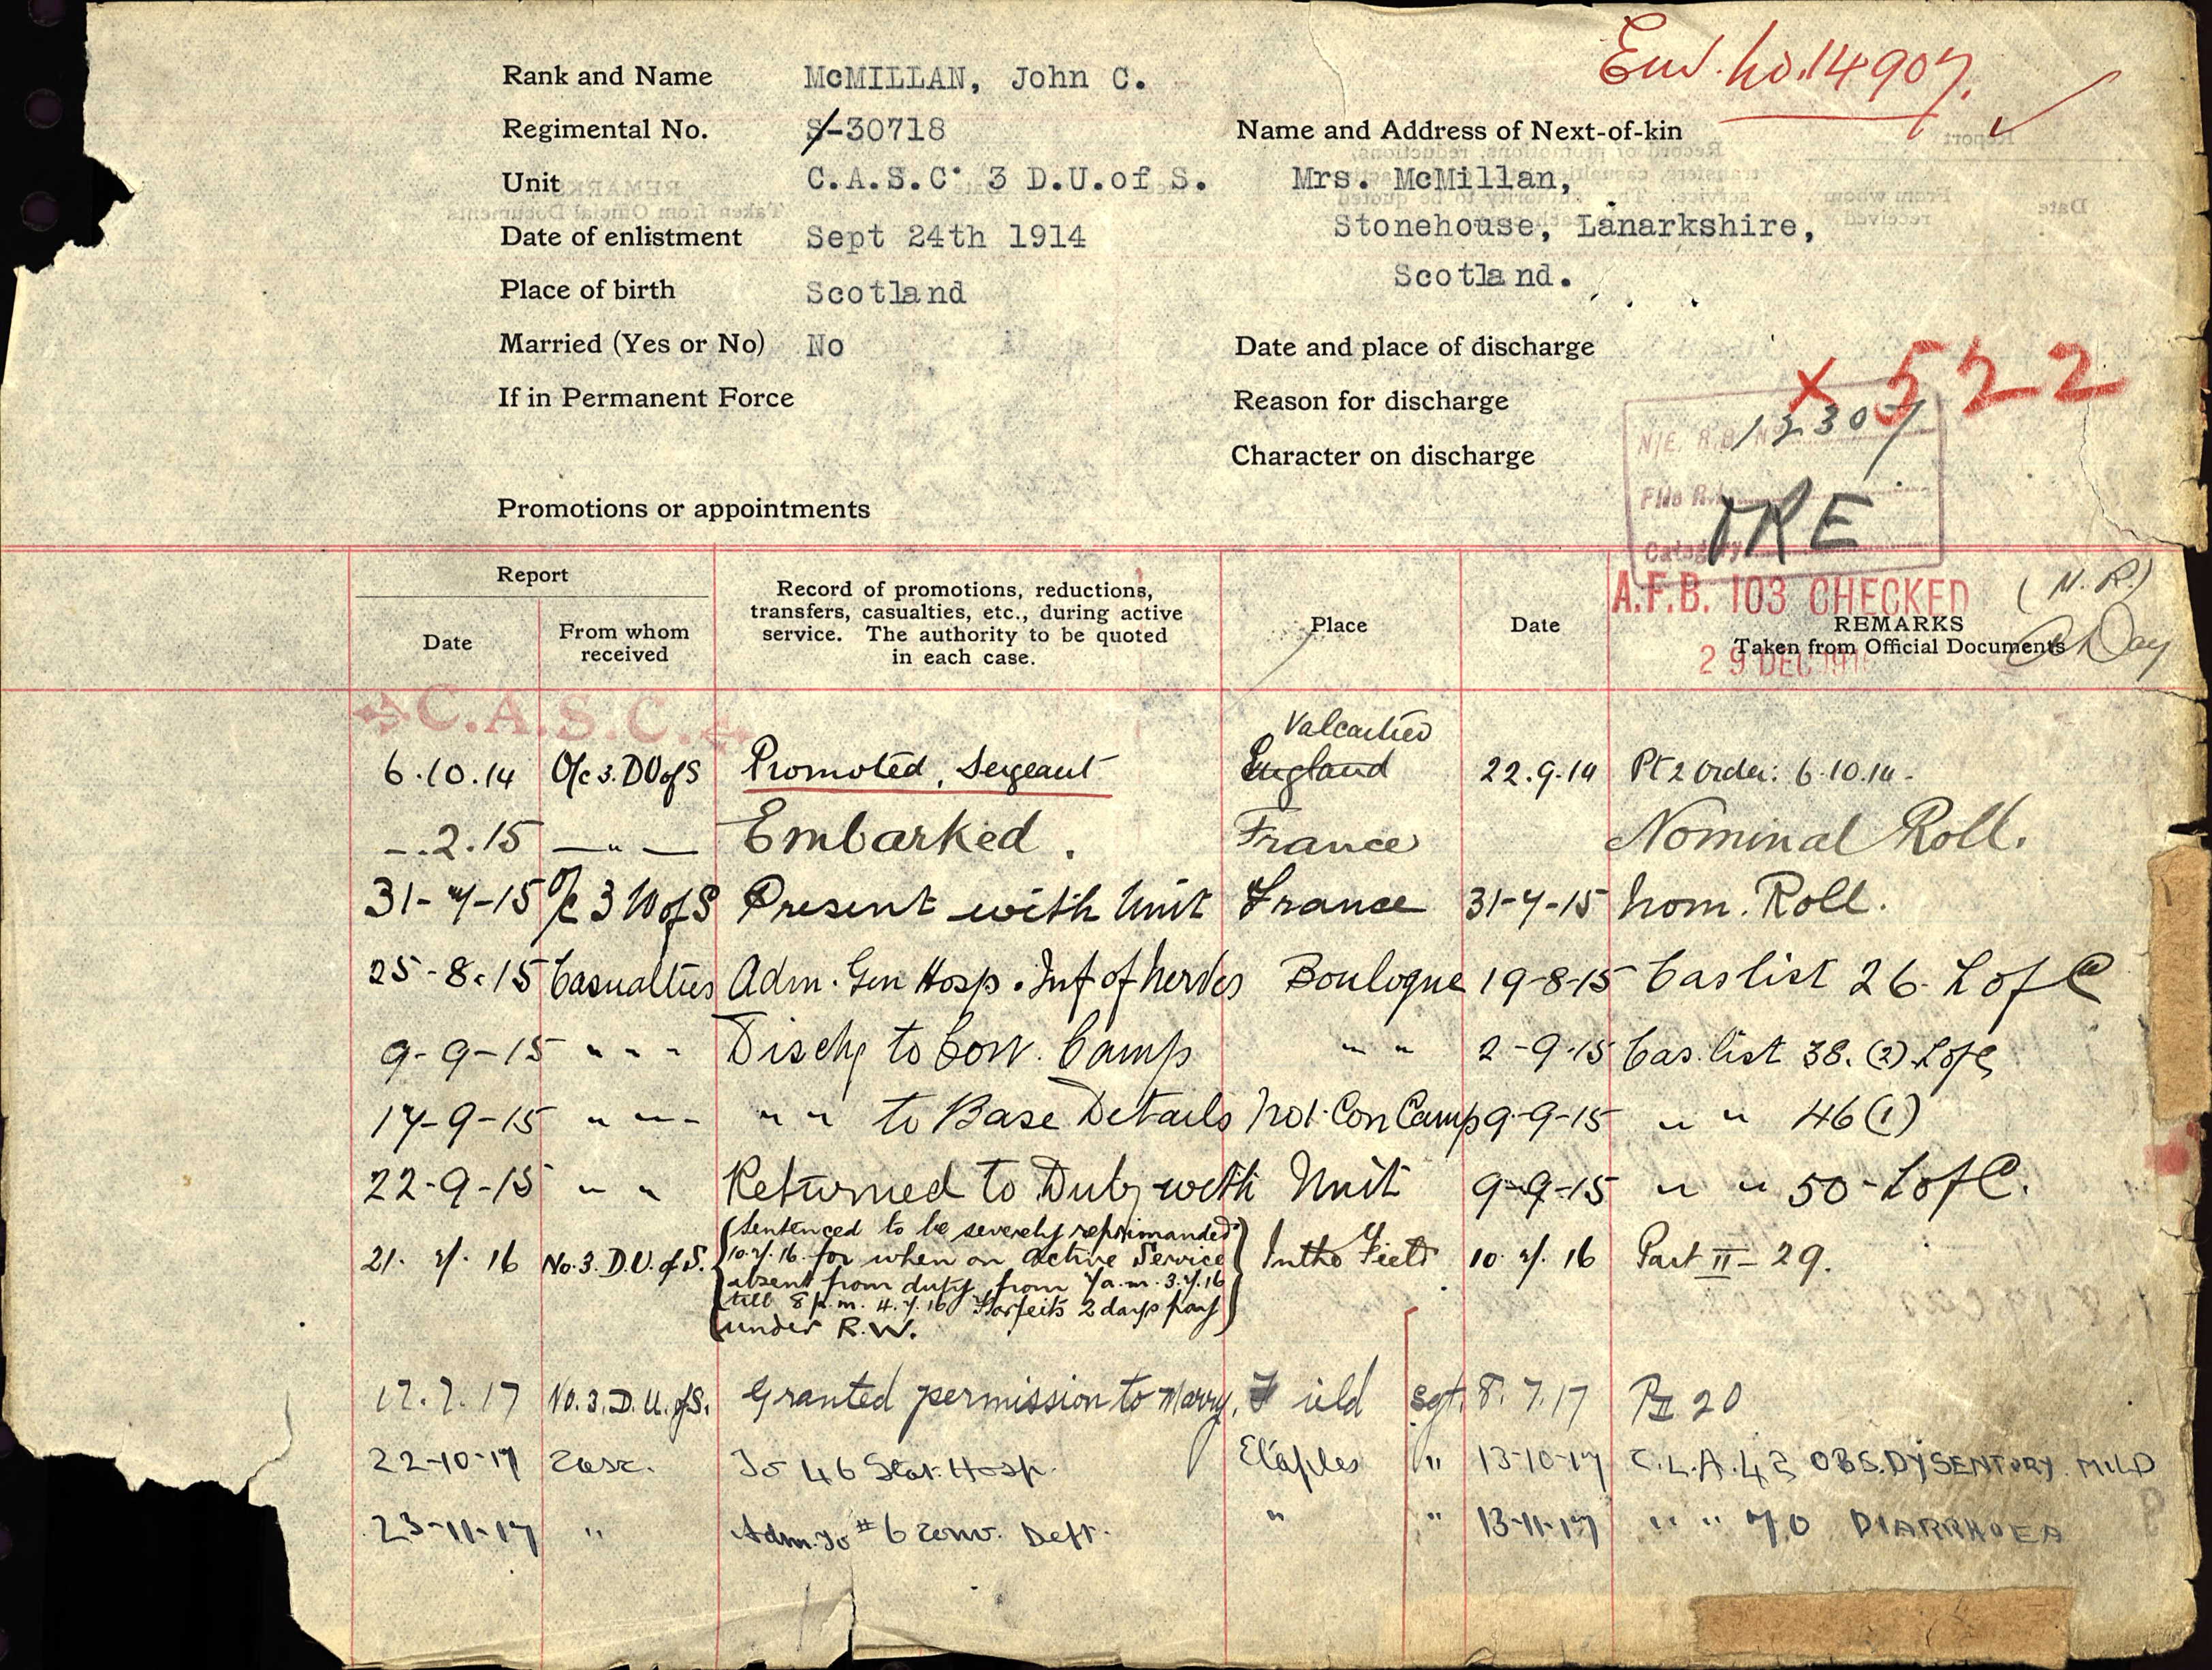 Env. No. 14907.
Rank and Name McMILLAN, John C.
Regimental No. S-30718
Name and Address of Next-of-kin
Unit C.A.S.C. 3 D.U.of S.
Mrs. McMillan,
Date of enlistment Sept 24th 1914
Stonehouse, Lanarkshire,
Scotland.
Place of birth Scotland
Married (Yes or No) No
Date and place of discharge
x 522
If in Permanent Force
Reason for discharge
N/E. R.B. No 12307
Character on discharge
File R.L.
Category
Promotions or appointments
Report
A.F.B. 103 CHECKED
(N.R.)
29 DEC
Day
Date
From whom received
Record of promotions, reductions,
transfers, casualties, etc., during active
service. The authority to be quoted
in each case.
Place
Date
REMARKS
Taken from Official Documents
C.A.S.C.
Valcartier
6.10.14 O/c 3. DU of S Promoted, Sergeant England 22.9.14 Pt 2 Order: 6.10.14.
-.2.15 — " — Embarked. France Nominal Roll.
31-7-15 O/c 3 DU of S Present with Unit France 31-7-15 Nom. Roll.
25-8-15 Casualties Adm. Gen Hosp. Inf of herdes Boulogne 19-8-15 Cas list 26. L of C
9-9-15 " " " Dischg to Con. Camp " " 2-9-15 Cas. list 38. (2) L of C
17-9-15 " " " " " to Base Details No1. Con Camp 9-9-15 " " 46 (1)
22-9-15 " " Returned to Duty with Unit 9-9-15 " " 50 - L of C.
21. 7. 16 No. 3. D.U. of S. Sentenced to be severely reprimanded
10.7.16. for when on Active Service
absent from duty from 7 a.m. 3.7.16
till 8 p.m. 4.7.16 Forfeits 2 days pay
under R.W.
In the Field 10. 7. 16 Part II - 29.
17.7.17 No. 3. D.U. of S. Granted permission to Marry. Field Sgt. 8.7.17 Pt II 20
22-10-17 Casc. To 46 Stat. Hosp. Etaples " 13-10-17 C.L.A.42 OBS. DYSENTORY. MILD
23-11-17 " Adm. To #6 Conv. Dept. " " 13-11-17 " " 70 DIARRHOEA